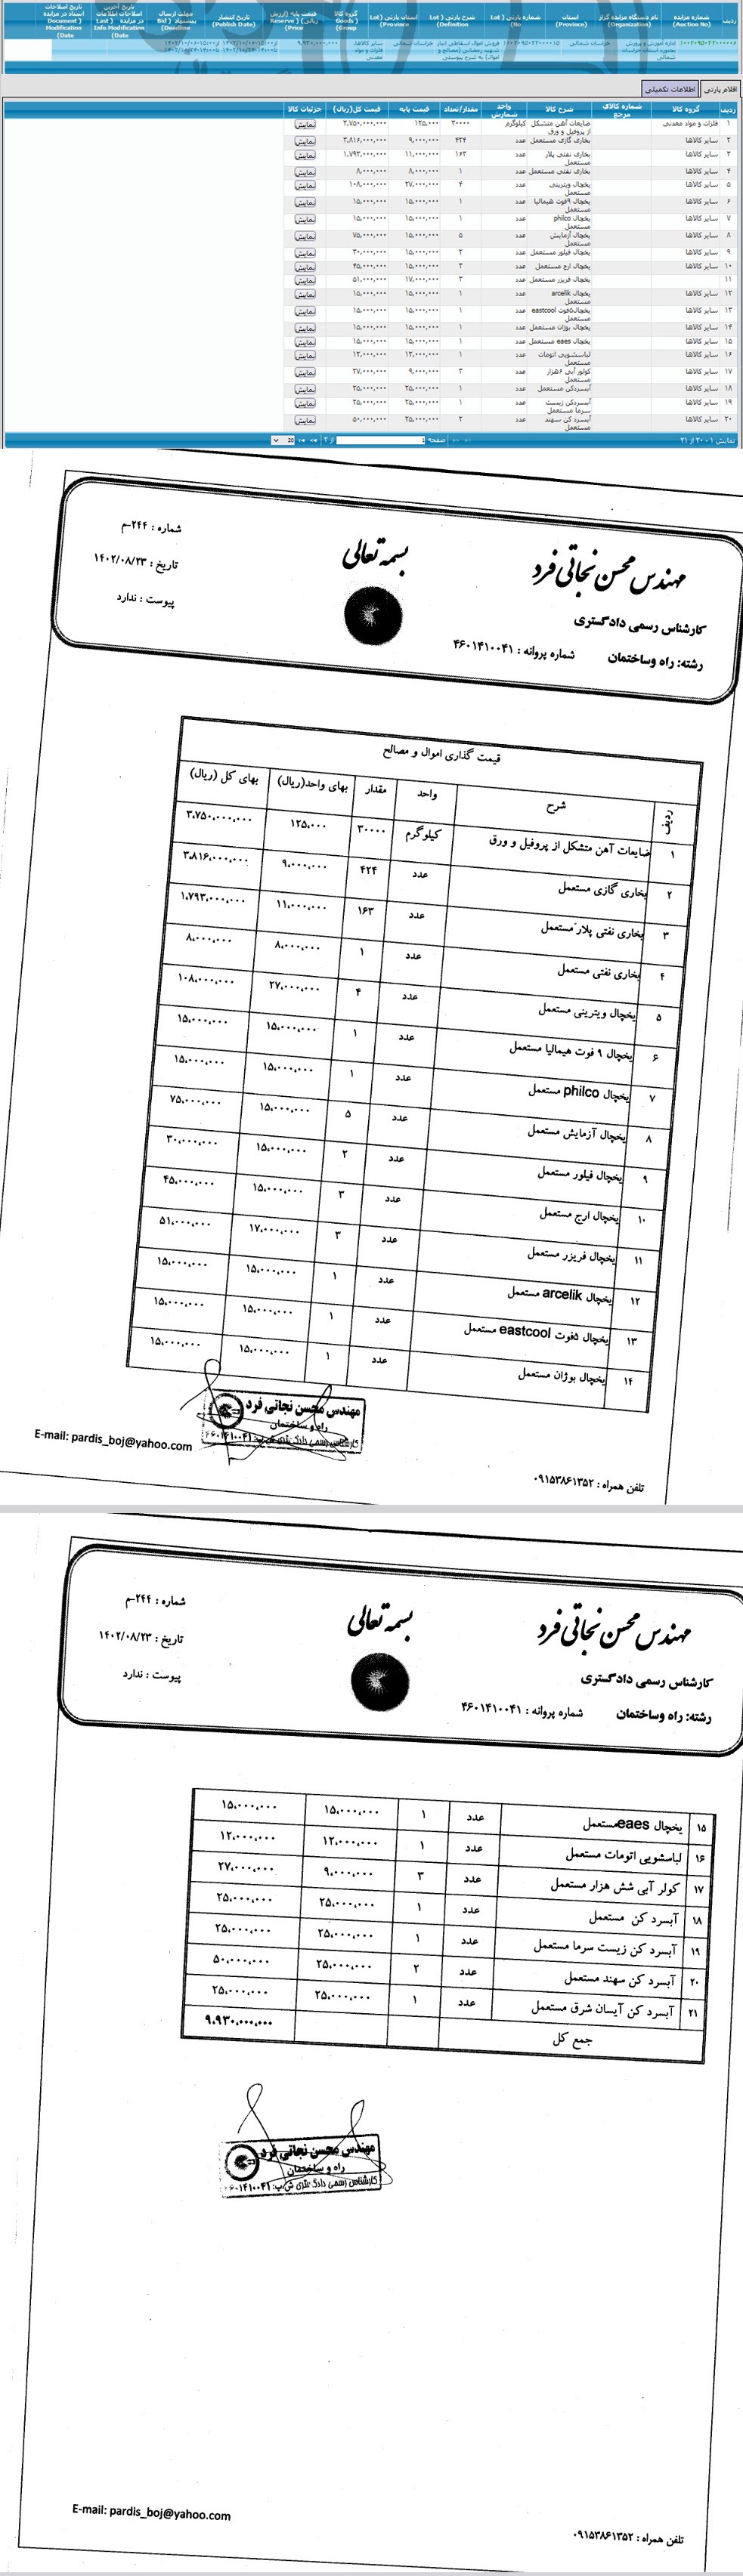 ردیف شماره مزایده (Auction No) نام دستگاه مزایده گزار (Organization) استان (Province) شماره پارتی (Lot No) شرح پارتی (Lot Definition) استان پارتی (Lot Province) گروه کالا (Goods Group) قیمت پایه (ارزش ریالی) (Reserve Price) تاریخ انتشار (Publish Date) مهلت ارسال پیشنهاد (Bid Deadline) تاریخ آخرین اصلاحات اطلاعات در مزایده (Last Info Modification Date) تاریخ اصلاحات اسناد در مزایده (Document Modification Date)
اداره آموزش و پرورش بجنورد استان خراسان شمالی خراسان شمالی فروش اموال اسقاطی انبار شهید رمضانی (مصالح و اموال) به شرح پیوستی خراسان شمالی سایر کالاها، فلزات و مواد معدنی ۹,۹۳۰,۰۰۰,۰۰۰
اقلام پارتی اطلاعات تکمیلی
ردیف گروه کالا شماره کالای مرجع شرح کالا واحد شمارش مقدار/تعداد قیمت پایه قیمت کل(ریال) جزئیات کالا
۱ فلزات و مواد معدنی ضایعات آهن متشکل از پروفیل و ورق کیلوگرم ۳۰۰۰۰ ۱۲۵,۰۰۰ ۳,۷۵۰,۰۰۰,۰۰۰ نمایش
۲ سایر کالاها بخاری گازی مستعمل عدد ۴۲۴ ۹,۰۰۰,۰۰۰ ۳,۸۱۶,۰۰۰,۰۰۰ نمایش
۳ سایر کالاها بخاری نفتی پلار مستعمل عدد ۱۶۳ ۱۱,۰۰۰,۰۰۰ ۱,۷۹۳,۰۰۰,۰۰۰ نمایش
۴ سایر کالاها بخاری نفتی مستعمل عدد ۱ ۸,۰۰۰,۰۰۰ ۸,۰۰۰,۰۰۰ نمایش
۵ سایر کالاها یخچال ویترینی مستعمل عدد ۴ ۲۷,۰۰۰,۰۰۰ ۱۰۸,۰۰۰,۰۰۰ نمایش
۶ سایر کالاها یخچال ۹فوت هیمالیا مستعمل عدد ۱ ۱۵,۰۰۰,۰۰۰ ۱۵,۰۰۰,۰۰۰ نمایش
۷ سایر کالاها یخچال philco مستعمل عدد ۱ ۱۵,۰۰۰,۰۰۰ ۱۵,۰۰۰,۰۰۰ نمایش
۸ سایر کالاها یخچال آزمایش مستعمل عدد ۵ ۱۵,۰۰۰,۰۰۰ ۷۵,۰۰۰,۰۰۰ نمایش
۹ سایر کالاها یخچال فیلور مستعمل عدد ۲ ۱۵,۰۰۰,۰۰۰ ۳۰,۰۰۰,۰۰۰ نمایش
۱۰ سایر کالاها یخچال ارج مستعمل عدد ۳ ۱۵,۰۰۰,۰۰۰ ۴۵,۰۰۰,۰۰۰ نمایش
۱۱ سایر کالاها یخچال فریزر مستعمل عدد ۳ ۱۷,۰۰۰,۰۰۰ ۵۱,۰۰۰,۰۰۰ نمایش
۱۲ سایر کالاها یخچال arcelik مستعمل عدد ۱ ۱۵,۰۰۰,۰۰۰ ۱۵,۰۰۰,۰۰۰ نمایش
۱۳ سایر کالاها یخچال۵فوت eastcool مستعمل عدد ۱ ۱۵,۰۰۰,۰۰۰ ۱۵,۰۰۰,۰۰۰ نمایش
۱۴ سایر کالاها یخچال بوژان مستعمل عدد ۱ ۱۵,۰۰۰,۰۰۰ ۱۵,۰۰۰,۰۰۰ نمایش
۱۵ سایر کالاها یخچال eaes مستعمل عدد ۱ ۱۵,۰۰۰,۰۰۰ ۱۵,۰۰۰,۰۰۰ نمایش
۱۶ سایر کالاها لباسشویی اتومات مستعمل عدد ۱ ۱۲,۰۰۰,۰۰۰ ۱۲,۰۰۰,۰۰۰ نمایش
۱۷ سایر کالاها کولور آبی ۶هزار مستعمل عدد ۳ ۹,۰۰۰,۰۰۰ ۲۷,۰۰۰,۰۰۰ نمایش
۱۸ سایر کالاها آبسردکن مستعمل عدد ۱ ۲۵,۰۰۰,۰۰۰ ۲۵,۰۰۰,۰۰۰ نمایش
۱۹ سایر کالاها آبسردکن زیست سرما مستعمل عدد ۱ ۲۵,۰۰۰,۰۰۰ ۲۵,۰۰۰,۰۰۰ نمایش
۲۰ سایر کالاها آبسرد کن سهند مستعمل عدد ۲ ۲۵,۰۰۰,۰۰۰ ۵۰,۰۰۰,۰۰۰ نمایش
نمایش ۱ - ۲۰ از ۲۱ صفحه 1 از ۲ 20
مهندس محسن نجاتی فرد
بسمه تعالی
شماره : ۲۴۴-م
تاریخ : ۱۴۰۲/۰۸/۲۳
پیوست : ندارد
کارشناس رسمی دادگستری
رشته: راه وساختمان شماره پروانه : ۴۶۰۱۴۱۰۰۴۱
قیمت گذاری اموال و مصالح
ردیف شرح واحد مقدار بهای واحد(ریال) بهای کل (ریال)
۱ ضایعات آهن متشکل از پروفیل و ورق کیلوگرم ۳۰۰۰۰ ۱۲۵,۰۰۰ ۳,۷۵۰,۰۰۰,۰۰۰
۲ بخاری گازی مستعمل عدد ۴۲۴ ۹,۰۰۰,۰۰۰ ۳,۸۱۶,۰۰۰,۰۰۰
۳ بخاری نفتی پلار مستعمل عدد ۱۶۳ ۱۱,۰۰۰,۰۰۰ ۱,۷۹۳,۰۰۰,۰۰۰
۴ بخاری نفتی مستعمل عدد ۱ ۸,۰۰۰,۰۰۰ ۸,۰۰۰,۰۰۰
۵ یخچال ویترینی مستعمل عدد ۴ ۲۷,۰۰۰,۰۰۰ ۱۰۸,۰۰۰,۰۰۰
۶ یخچال ۹ فوت هیمالیا مستعمل عدد ۱ ۱۵,۰۰۰,۰۰۰ ۱۵,۰۰۰,۰۰۰
۷ یخچال philco مستعمل عدد ۱ ۱۵,۰۰۰,۰۰۰ ۱۵,۰۰۰,۰۰۰
۸ یخچال آزمایش مستعمل عدد ۵ ۱۵,۰۰۰,۰۰۰ ۷۵,۰۰۰,۰۰۰
۹ یخچال فیلور مستعمل عدد ۲ ۱۵,۰۰۰,۰۰۰ ۳۰,۰۰۰,۰۰۰
۱۰ یخچال ارج مستعمل عدد ۳ ۱۵,۰۰۰,۰۰۰ ۴۵,۰۰۰,۰۰۰
۱۱ یخچال فریزر مستعمل عدد ۳ ۱۷,۰۰۰,۰۰۰ ۵۱,۰۰۰,۰۰۰
۱۲ یخچال arcelik مستعمل عدد ۱ ۱۵,۰۰۰,۰۰۰ ۱۵,۰۰۰,۰۰۰
۱۳ یخچال ۵فوت eastcool مستعمل عدد ۱ ۱۵,۰۰۰,۰۰۰ ۱۵,۰۰۰,۰۰۰
۱۴ یخچال بوژان مستعمل عدد ۱ ۱۵,۰۰۰,۰۰۰ ۱۵,۰۰۰,۰۰۰
مهندس محسن نجاتی فرد
راه و ساختمان
کارشناس رسمی دادگستری ش.پ: ۴۶۰۱۴۱۰۰۴۱
E-mail: pardis_boj@yahoo.com
تلفن همراه : ۰۹۱۵۳۸۶۱۳۵۲
مهندس محسن نجاتی فرد
بسمه تعالی
شماره : ۲۴۴-م
تاریخ : ۱۴۰۲/۰۸/۲۳
پیوست : ندارد
کارشناس رسمی دادگستری
رشته: راه وساختمان شماره پروانه : ۴۶۰۱۴۱۰۰۴۱
۱۵ یخچال eaes مستعمل عدد ۱ ۱۵,۰۰۰,۰۰۰ ۱۵,۰۰۰,۰۰۰
۱۶ لباسشویی اتومات مستعمل عدد ۱ ۱۲,۰۰۰,۰۰۰ ۱۲,۰۰۰,۰۰۰
۱۷ کولر آبی شش هزار مستعمل عدد ۳ ۹,۰۰۰,۰۰۰ ۲۷,۰۰۰,۰۰۰
۱۸ آبسرد کن مستعمل عدد ۱ ۲۵,۰۰۰,۰۰۰ ۲۵,۰۰۰,۰۰۰
۱۹ آبسرد کن زیست سرما مستعمل عدد ۱ ۲۵,۰۰۰,۰۰۰ ۲۵,۰۰۰,۰۰۰
۲۰ آبسرد کن سهند مستعمل عدد ۲ ۲۵,۰۰۰,۰۰۰ ۵۰,۰۰۰,۰۰۰
۲۱ آبسرد کن آیسان شرق مستعمل عدد ۱ ۲۵,۰۰۰,۰۰۰ ۲۵,۰۰۰,۰۰۰
جمع کل ۹,۹۳۰,۰۰۰,۰۰۰
مهندس محسن نجاتی فرد
راه و ساختمان
کارشناس رسمی دادگستری ش.پ: ۴۶۰۱۴۱۰۰۴۱
E-mail: pardis_boj@yahoo.com
تلفن همراه : ۰۹۱۵۳۸۶۱۳۵۲